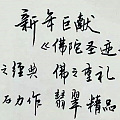 新年巨献
《佛陀圣迹
之经典 佛之重礼
石力作 翡翠精品